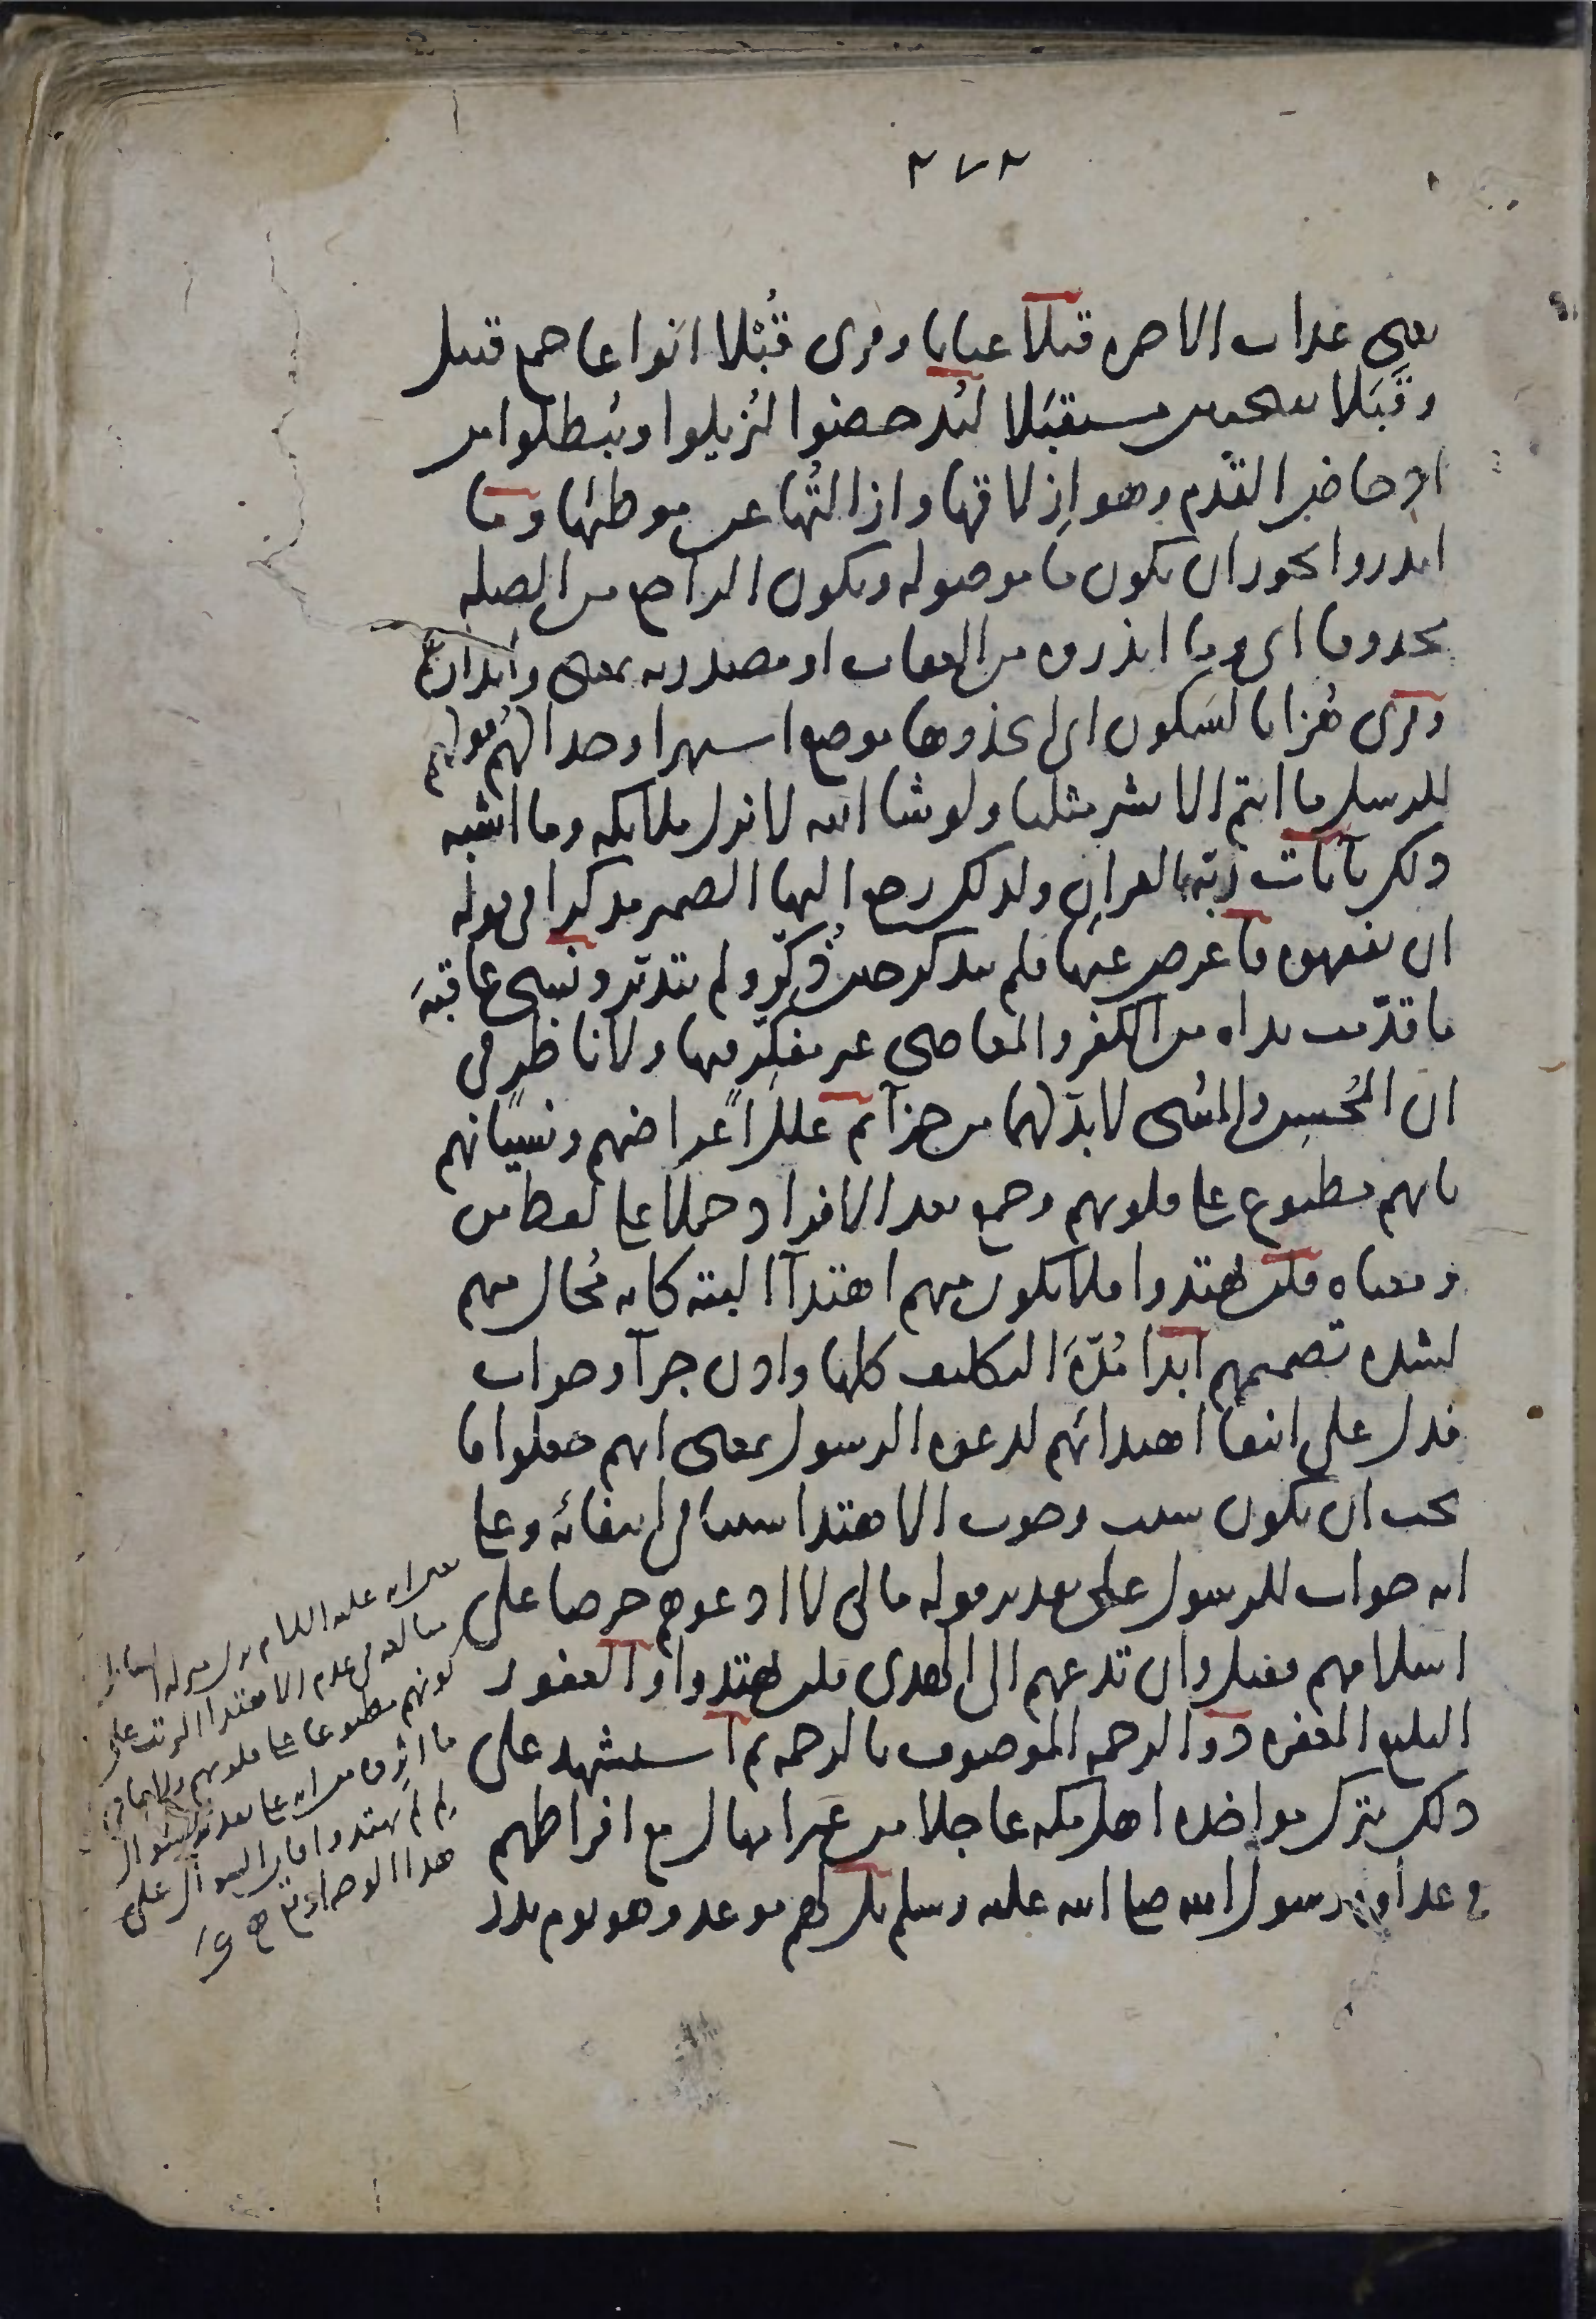 ٢٧٢
يعنى عذاب الاخره قبلا عيانا وقرى قُبْلا انواعا جمع قبيل
وقَبَلا بفتحتين مستقبَلا ليُدحضوا ليُزيلوا ويُبطلوا من
ادحاض القدم وهو ازلاقها وازالتُها عن موطئها وما
انذروا يجوز ان يكون ما موصوله ويكون الراجع من الصله
محذوفا اى وما انذروه من العقاب او مصدريه بمعنى وانذارهم
وقرى هُزا بالسكون اى اتخذوها موضع استهزا وجدالهُم قولهم
للرسل ما انتم الا بشر مثلنا ولو شا الله لانزل ملائكه وما اشبه
ذلك بآيات ربّه بالقران ولذلك رجع اليها الضمير مذكرا فى قوله
ان يفقهوه فاعرض عنها فلم يتذكر حين ذُكِّر ولم يتدبّر ونسى عاقبَة
ما قدّمت يداه من الكفر والمعاصى غير مفكّر فيها ولا ناظرٍ فى
ان المُحسِن والمسُى لا بدّ لهما من جزآ ثم علل اعراضهم ونسيانهم
بانهم مطبوع على قلوبهم وجمع بعد الافراد حملا على لفظ من
ومعناه فلن يهتدوا فلا يكون منهم اهتدآ البته كانه مُحال منهم
لشده تصميمهم ابدا مُدّةَ التكليف كلها واذن جزآ وجواب
فدل على انتفا اهتدائهم لدعوه الرسول بمعنى انهم جعلوا ما
يجب ان يكون سبب وجوب الاهتدا سببا فى انتفائه وعلى
انه جواب للرسول على تقدير قوله مالى لا ادعوهم حرصا على
اسلامهم فقيل وان تدعهم الى الهدى فلن يهتدوا والغفور
البليغ المغفره ذو الرحمه الموصوف بالرحمه ثم استشهد على
ذلك بترك مواخذه اهل مكه عاجلا من غير امهال مع افراطهم
فى عداوه رسول الله صلى الله عليه وسلم بل لهم موعد وهو يوم بدر
عليه السلام
عدم الاهتدا المرتب على
كونهم مطبوعا على قلوبهم
على تقدير سوال
لِم لم يهتدوا فان السوال على
هذا الوجه